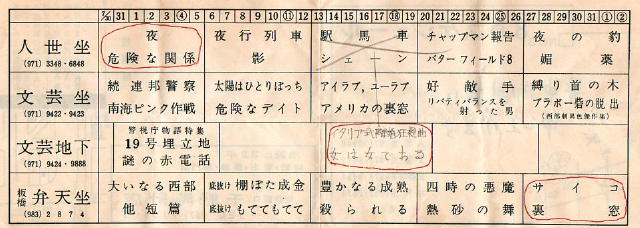 7/30 31 1 2 3 ④ 5 6 7 8 9 10 ⑪ 12 13 14 15 16 17 ⑱ 19 20 21 22 23 24 ㉕ 26 27 28 29 30 31 ① ②
人世坐
(971) 3348・6848
夜
危険な関係
夜行列車
影
駅馬車
シェーン
チャップマン報告
バターフィールド8
夜の豹
媚薬
文芸坐
(971) 9422・9423
続連邦警察
南海ピンク作戦
太陽はひとりぼっち
危険なデイト
アイラブ,ユーラブ
アメリカの裏窓
好敵手
リバティバランスを
射った男
縛り首の木
ブラボー砦の脱出
(西部劇異色傑作集)
文芸地下
(971) 9424・9888
警視庁物語特集
19号埋立地
謎の赤電話
イタリア式離婚狂想曲
女は女である
板橋 弁天坐
(983) 2874
大いなる西部
他短篇
底抜け 棚ぼた成金
底抜け もててもてて
豊かなる成熟
殺られる
四時の悪魔
熱砂の舞
サイコ
裏窓